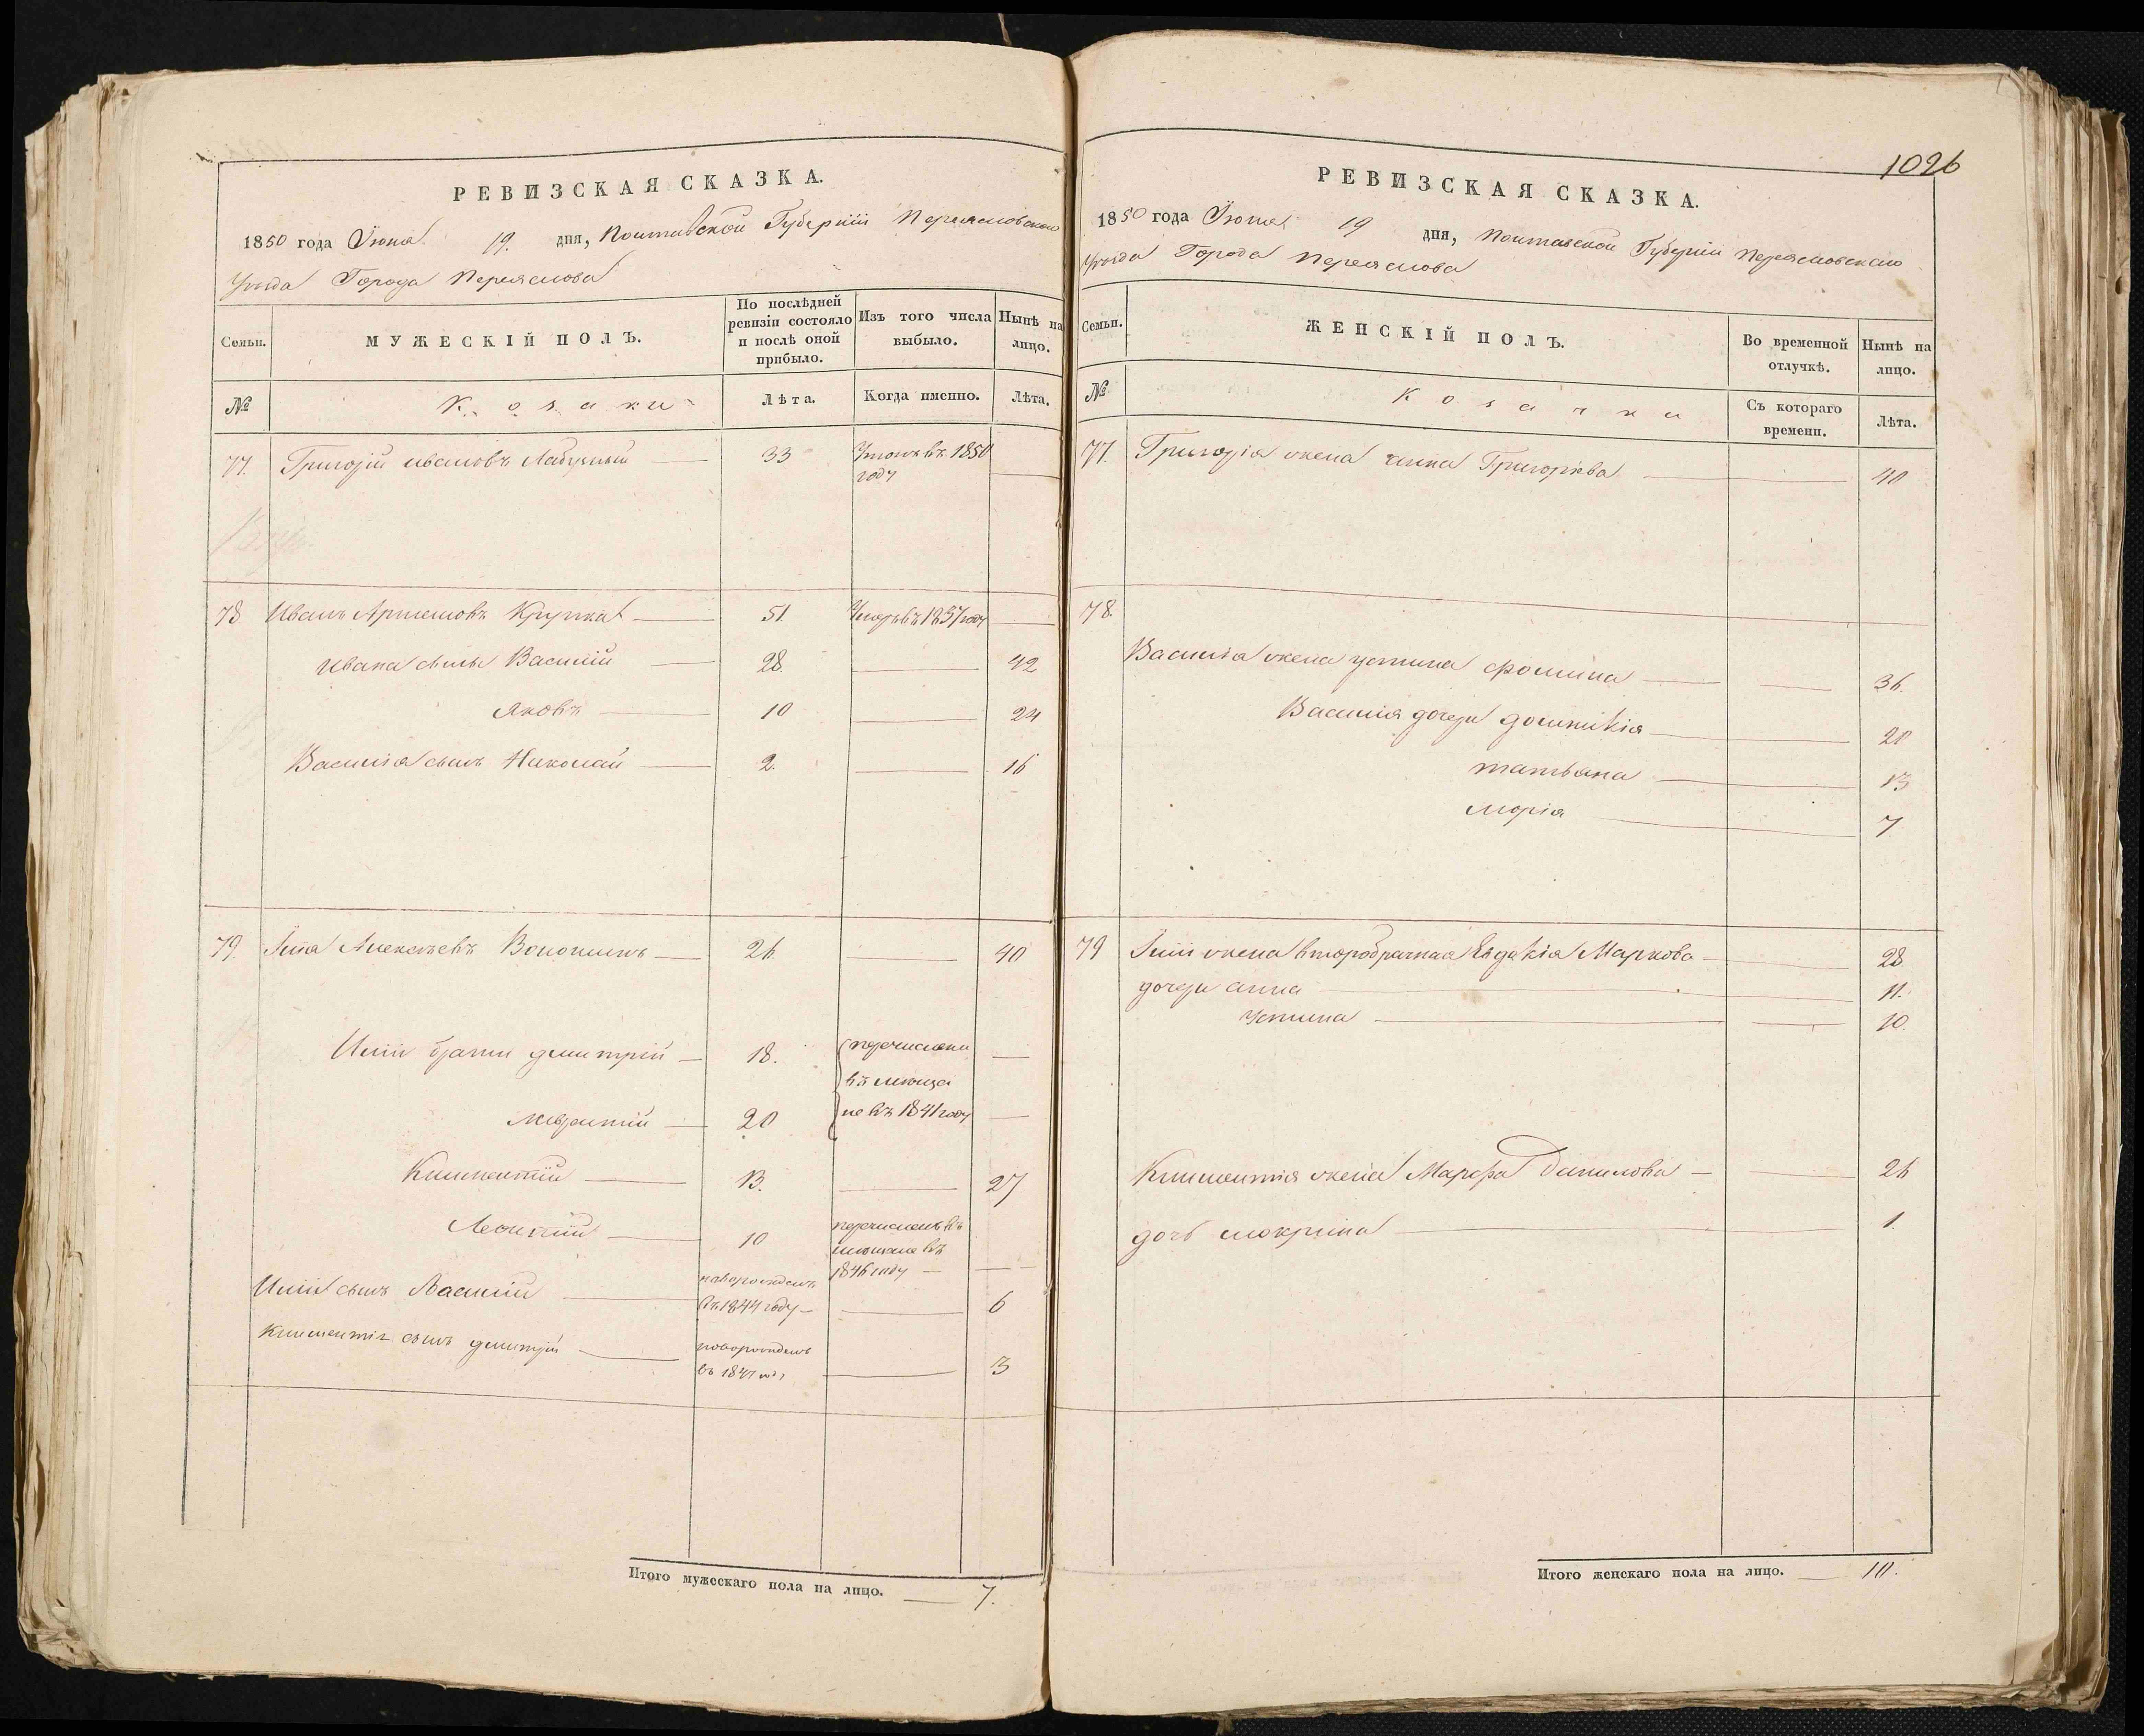 РЕВИЗСКАЯ СКАЗКА.
1850 года Іюня 19. дня, Полтавской Губерніи Переяславского
Уѣзда Города Переяслова
Семьи.
МУЖЕСКІЙ ПОЛЪ.
По послѣдней ревизіи состояло и послѣ оной прибыло.
Изъ того числа выбыло.
Нынѣ на лицо.
№
Козаки
Лѣта.
Когда именно.
Лѣта.
77. Григорій Ивановъ 33 въ 1850
году
78 Иванъ Артемовъ Крупка 51. Умеръ въ 1837 году
Ивана сынъ Василій 28. 42
Яковъ 10 24
Василія сынъ Николай 2. 16
79. Илія Алексѣевъ Волошинъ 26. 40
Иліи братья дмитрій 18. перечислены
въ мѣща
20 не въ 1841 году
Климентій 13. 27
Леонтій 10 перечисленъ въ
мѣщане въ
1846 году
Иліи сынъ Василій новорожденъ
въ 1844 году 6
Климентія сынъ дмитрій новорожденъ
въ 1847 году 3
Итого мужескаго пола на лицо. 7.
1026
РЕВИЗСКАЯ СКАЗКА.
1850 года Іюня 19 дня, Полтавской Губерніи Переясловскаго
Уѣзда Города Переяслова
Семьи.
ЖЕНСКІЙ ПОЛЪ.
Во временной отлучкѣ.
Нынѣ на лицо.
№
Козачки
Съ котораго времени.
Лѣта.
77. Григорія жена анна Григорьева 40
78.
Василія жена устина фомина 36.
Василія дочери домникія 20
татьяна 13
марія 7
79 Иліи жена второбрачная Евдокія Маркова 28.
дочери анна 11.
Устина 10.
Климентія жена Марфа Данилова 26
дочь мокрина 1.
Итого женскаго пола на лицо. 10.